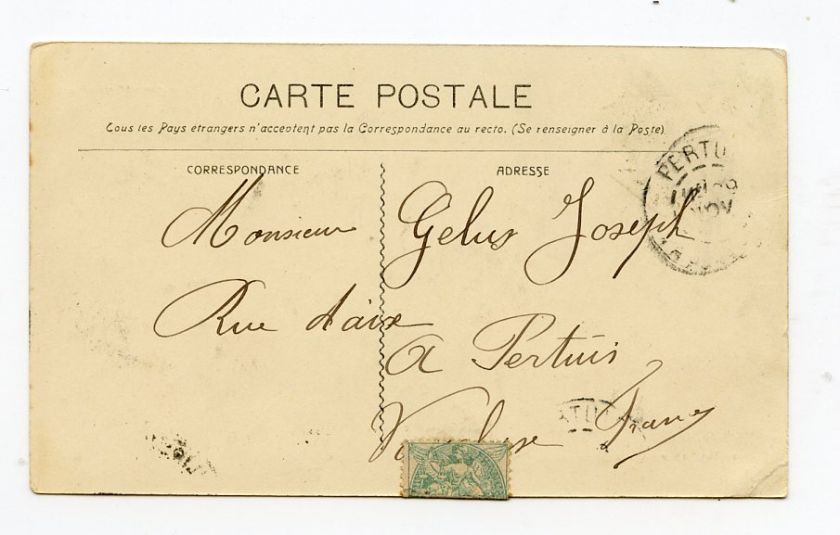 CARTE POSTALE
Tous les Pays étrangers n'acceptent pas la Correspondance au recto. (Se renseigner à la Poste)
CORRESPONDANCE
ADRESSE
PERTU
NOV
Monsieur Gelus Joseph
Rue d'aix
A Pertuis
Vaucluse France